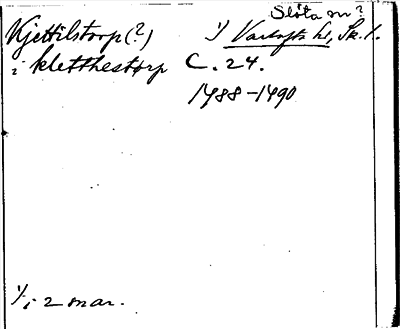 Slöta sn?
Kjettilstorp (?) i Vartofts hd, Sk. l.
i kletthestorp C. 24.
1488-1490
1/1 i 2 mar.